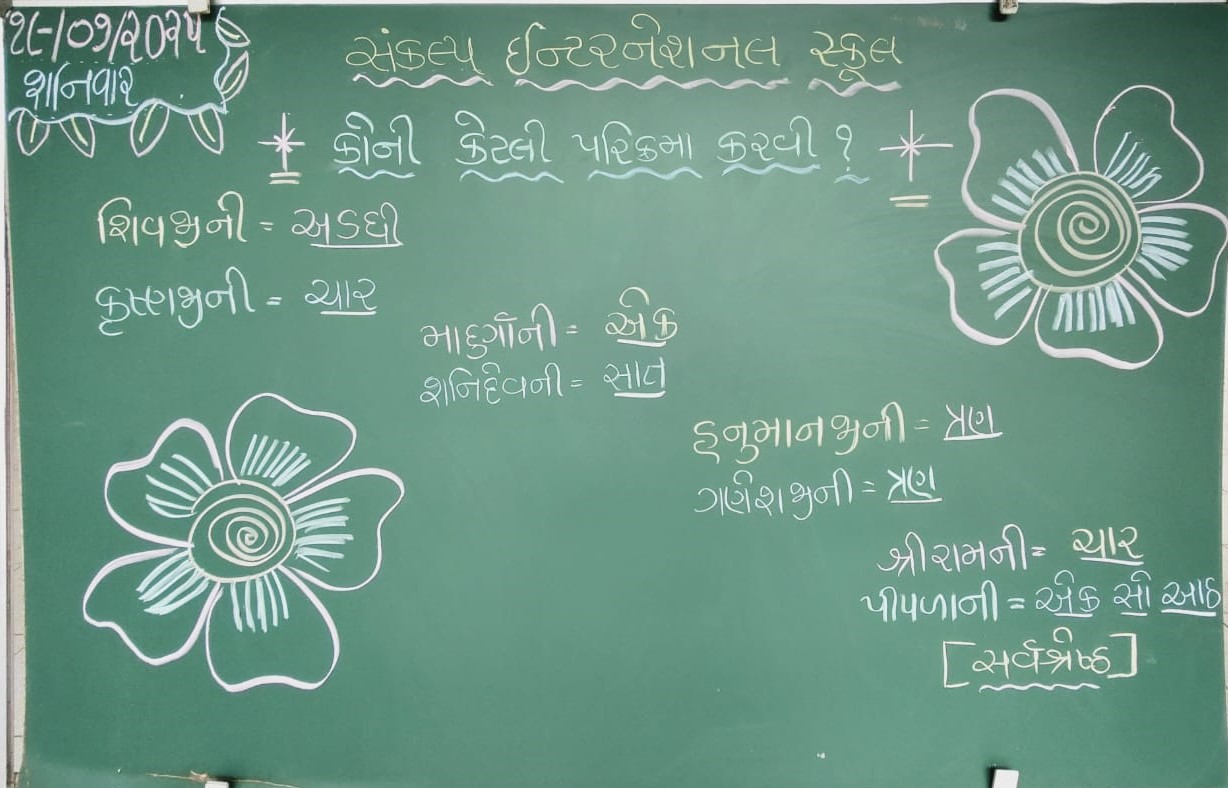 ૧૮/૦૧/૨૦૨૫
શનિવાર
સંકલ્પ ઈન્ટરનેશનલ સ્કૂલ
કોની કેટલી પરિક્રમા કરવી ?
શિવજીની = અડધી
કૃષ્ણજીની = ચાર
માદુર્ગાની = એક
શનિદેવની = સાત
હનુમાનજીની = ત્રણ
ગણેશજીની = ત્રણ
શ્રીરામની = ચાર
પીપળાની = એક સો આઠ
[સર્વશ્રેષ્ઠ]